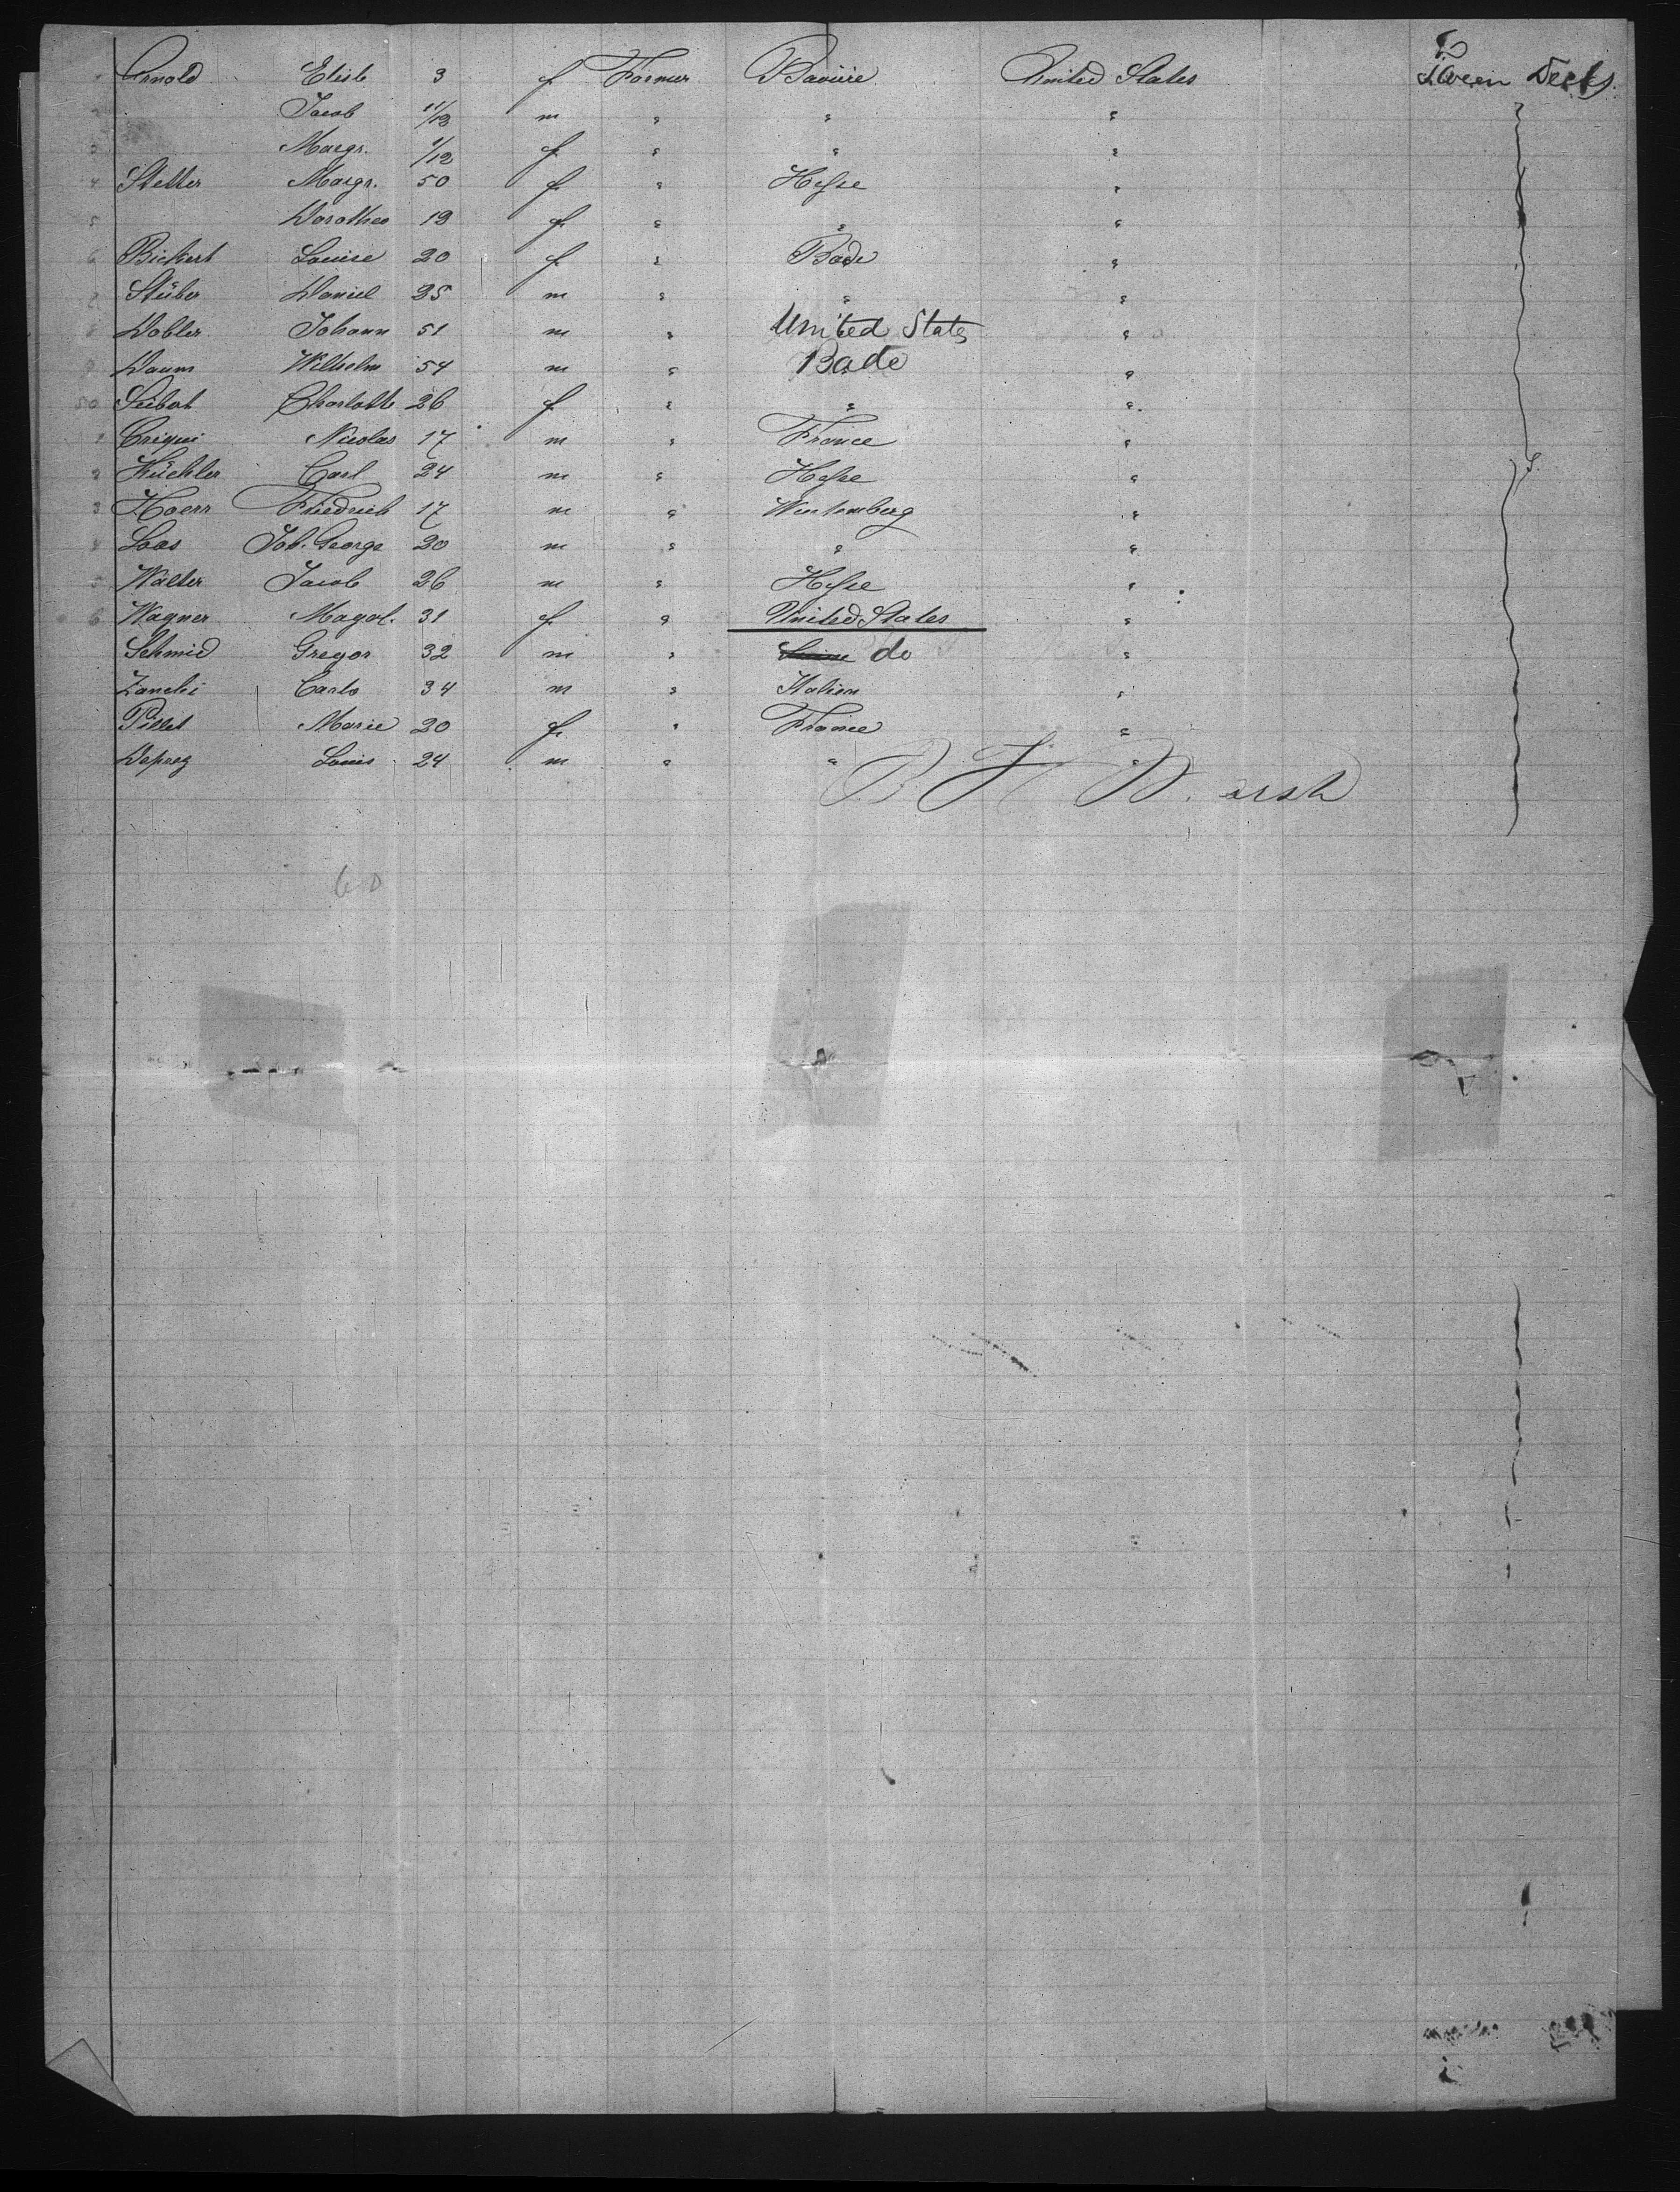 Arnold Elisb 3 f Farmer Bavière United States Tween Decks
2 Jacob 11/12 m " " "
3 Margr. 1/12 f " " "
4 Stetter Margr. 50 f " Hesse "
5 Dorothea 19 f " " "
6 Bickert Louise 20 f " Bade "
Stüber Daniel 25 m " " "
Dobler Johann 51 m " United States "
Daum Wilhelm 54 m " Bade "
50 Charlotte 26 f " " "
1 Criqui Nicolas 17 m " France "
2 Küchler Carl 24 m " Hesse "
3 Haerr Friedrich 17 m " Wurtemberg "
4 Laas Joh. George 20 m " " "
5 Walter Jacob 26 m " Hesse "
6 Wagner Magd. 31 f " United States "
Schmid Gregor 32 m " do "
Zanchi Carlo 34 m " Italien "
Marie 20 f " France "
Deprez Louis 24 m " " "
60